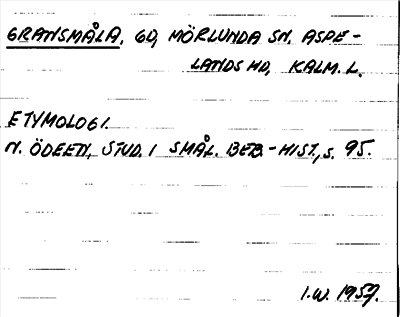 GRANSMÅLA, GD, MÖRLUNDA SN. ASPE-
LANDS HD, KALM. L.
ETYMOLOGI.
N. ÖDEEN, STUD. I SMÅL. BEB.-HIST., S. 95.
I.W. 1957.